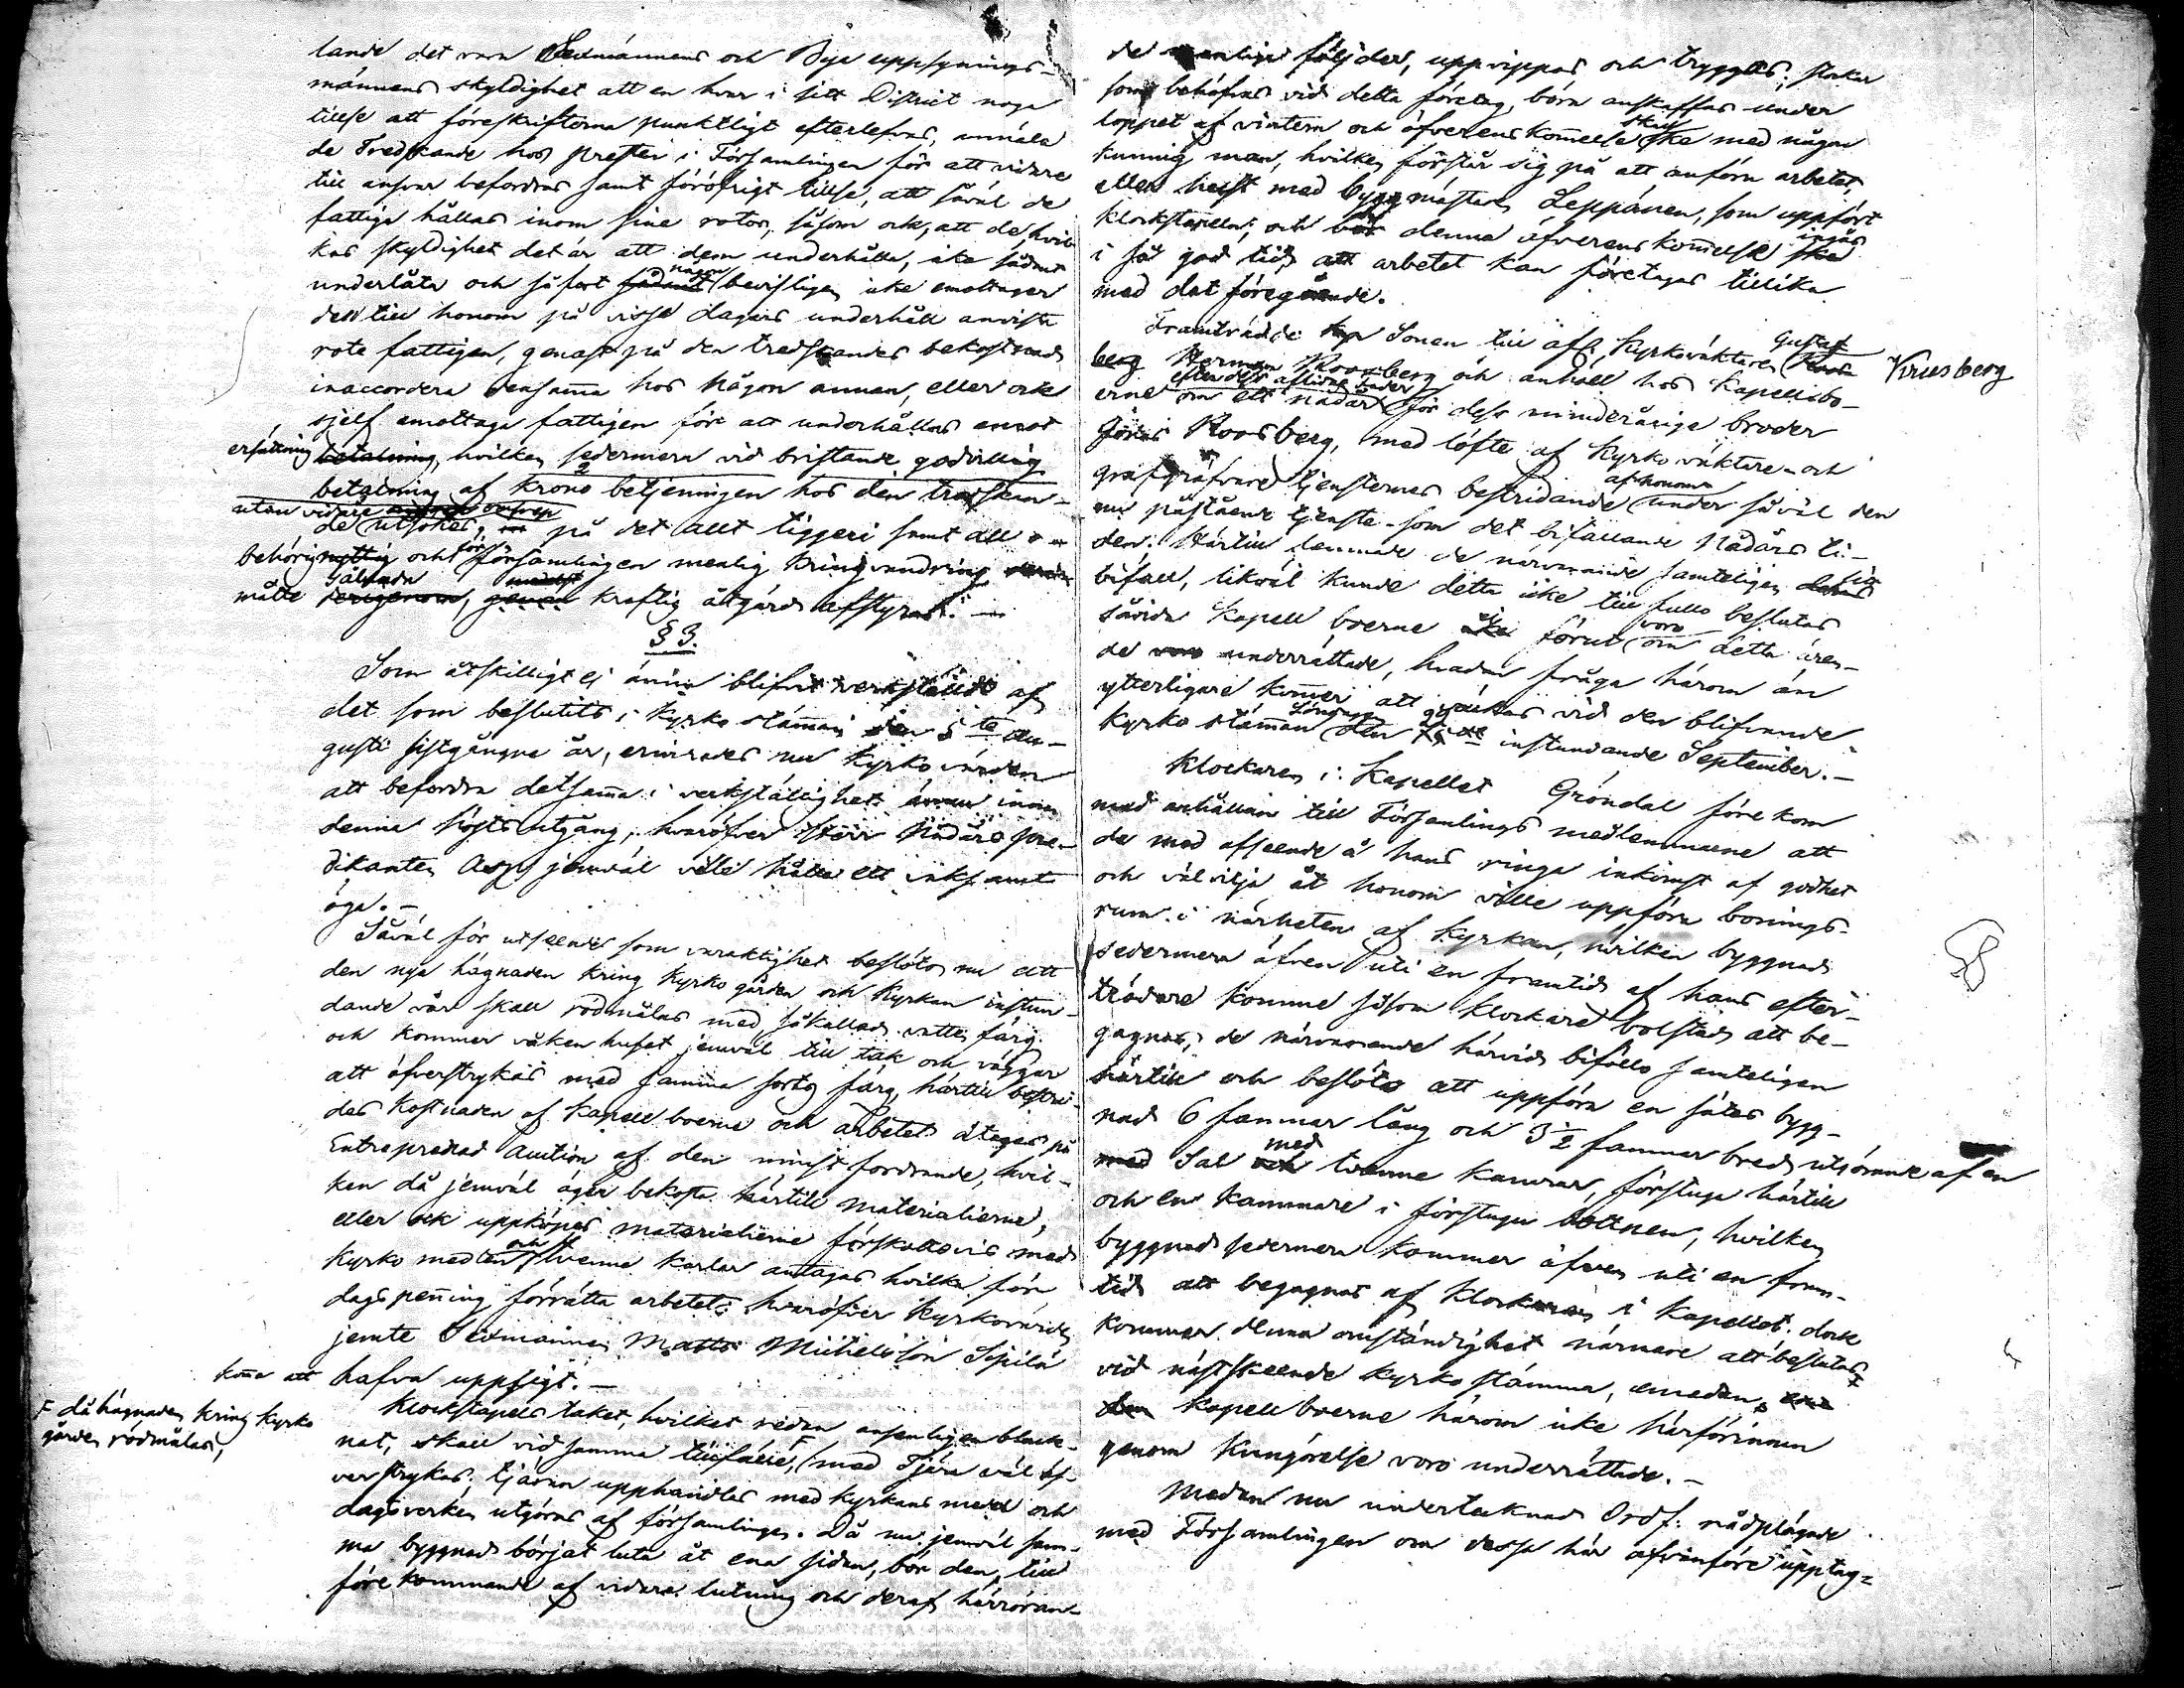 lande det vara Sexmännens och Bya uppsynings-
männens skyldighet att en hvar i sitt District noga
tillse att föreskrifterna punktligt efterlefvas, anmäla
de Tredskande hos presten i Församlingen för att vidare
till ansvar befordras samt föröfrigt tillse, att såväl de
fattiga hållas inom sine rotor, såsom ock, att de, hvil-
kas skyldighet det är att dem underhålla, icke sådant
underlåta och så fort någon bevisligen icke emottager
den till honom på visse dagars underhåll anviste
rote fattigen, genast på den tredskandes bekostnad
inaccordera densamma hos någon annan, eller ock
sjelf emottaga fattigen för att underhållas emot
ersättning betalning, hvilken sedermera vid bristande godvillig
betalning af krono betjeningen hos den tredskan-
utan vidare
de utsökes, på det allt tiggeri samt all o-
behörig nyttig och för församlingen menlig kringvandring
måtte sålunda medelst kraftig åtgärd afstyras. —
§ 3.
Som åtskilligt ej ännu blifvit verkstäldt af
det som beslutits i Kyrko stämman den 5te Au-
gusti sistgångne år, erinrades nu Kyrkovärden
att befordra detsamma i verkställighet innan
denna hösts utgång, hvaröfver Herr Nådårs pre-
dikanten Asp jemväl ville hålla ett vaksamt
öga. —
Såväl för utseende som varaktighet beslöts nu att
den nya hägnaden kring Kyrko gården och Kyrkan instun-
dande vår skall rödmålas med såkallad vatten färg.
och kommer våken huset jemväl till tak och väggar
att öfverstrykas med samma sorts färg, härtill bestri-
des kostnaden af Kapell boerne och arbetet åtages på
Entreprenad Auction af den minst fordrande, hvil-
ken då jemväl äger bekosta härtill materialierne,
eller ock uppköpes materialierne förskottsvis med
Kyrko medlen och tvenne karlar antagas hvilka för
dagspenning förrätta arbetet; hvaröfver Kyrkovärden
jemte Sexmannen Matts Michelsson Sipilä
komma att hafva uppsigt. —
Klockstapels taket, hvilket redan ansenligen blek-
F då hägnaden kring Kyrko
gården rödmålas,
nat, skall vid samma tillfälle, F med Tjära väl öf-
verstrykas; tjäran upphandlas med Kyrkans medel och
dagsverken utgöras af församlingen. Då nu jemväl sam-
ma byggnad börjat luta åt ena sidan, bör den, till
före kommande af vidare lutning och deraf härröran-
de menliga följder, uppvippas och tryggas; stockar
som behöfvas vid detta företag, böra anskaffas under
loppet af vintern och öfverenskommelse ske med någon
kunnig man, hvilken förstår sig på att anföra arbetet,
eller helst med byggmästaren Leppänen, som uppfört
klockstapeln, och bör denna öfverenskommelse ingås ske
i så god tid, att arbetet kan företagas tillika
med det föregående.
Framträdde Sonen till afl. Kyrkoväktaren Gustaf Kruusberg
Herman Roosberg och anhöll hos Kapellbo-
erne om ett nådår efter dess aflidne fader för dess minderåriga broder
Roosberg, med löfte af Kyrko väktare- och
grafgräfvare tjensternes bestridande af honom under såväl den
nu påstående tjenste- som det bifallande Nådårs ti-
den. Härtill lemnade de närvarande samteligen sitt
bifall, likväl kunde detta icke till fullo beslutas
såvida Kapell boerne ej förut voro om detta ären-
de underrättade, hvadan fråga härom än
ytterligare kommer att väckas vid den blifvande
Kyrko stämman Söndagen den instundande September. —
Klockaren i Kapellet Gröndal före kom
med anhållan till Församlings medlemmarne att
de med afseende å hans ringa inkomst af godhet
och välvilja åt honom ville uppföra bonings-
rum i närheten af Kyrkan, hvilken byggnad
sedermera äfven uti en framtid af hans efter-
trädare komme såsom klockare bolstad att be-
gagnas; de närvarande härvid biföllo samteligen
härtill och beslöts att uppföra en sådan bygg-
nad 6 famnar lång och 3½ famnar bred utgörande af en
Sal med tvenne kamrar, förstuga härtill
och en kammare i förstugu bottnen, hvilken
byggnad sedermera kommer äfven uti en fram-
tid att begagnas af klockaren i Kapellet. dock
kommer denna omständighet närmare att beslutas
vid nästskeende Kyrko stämma, emedan
Kapell boerne härom icke härförinnan
genom kungörelse voro underrättade. —
Medan nu undertecknad Ordf: rådplägade
med Församlingen om dessa här ofvanföre upptag-